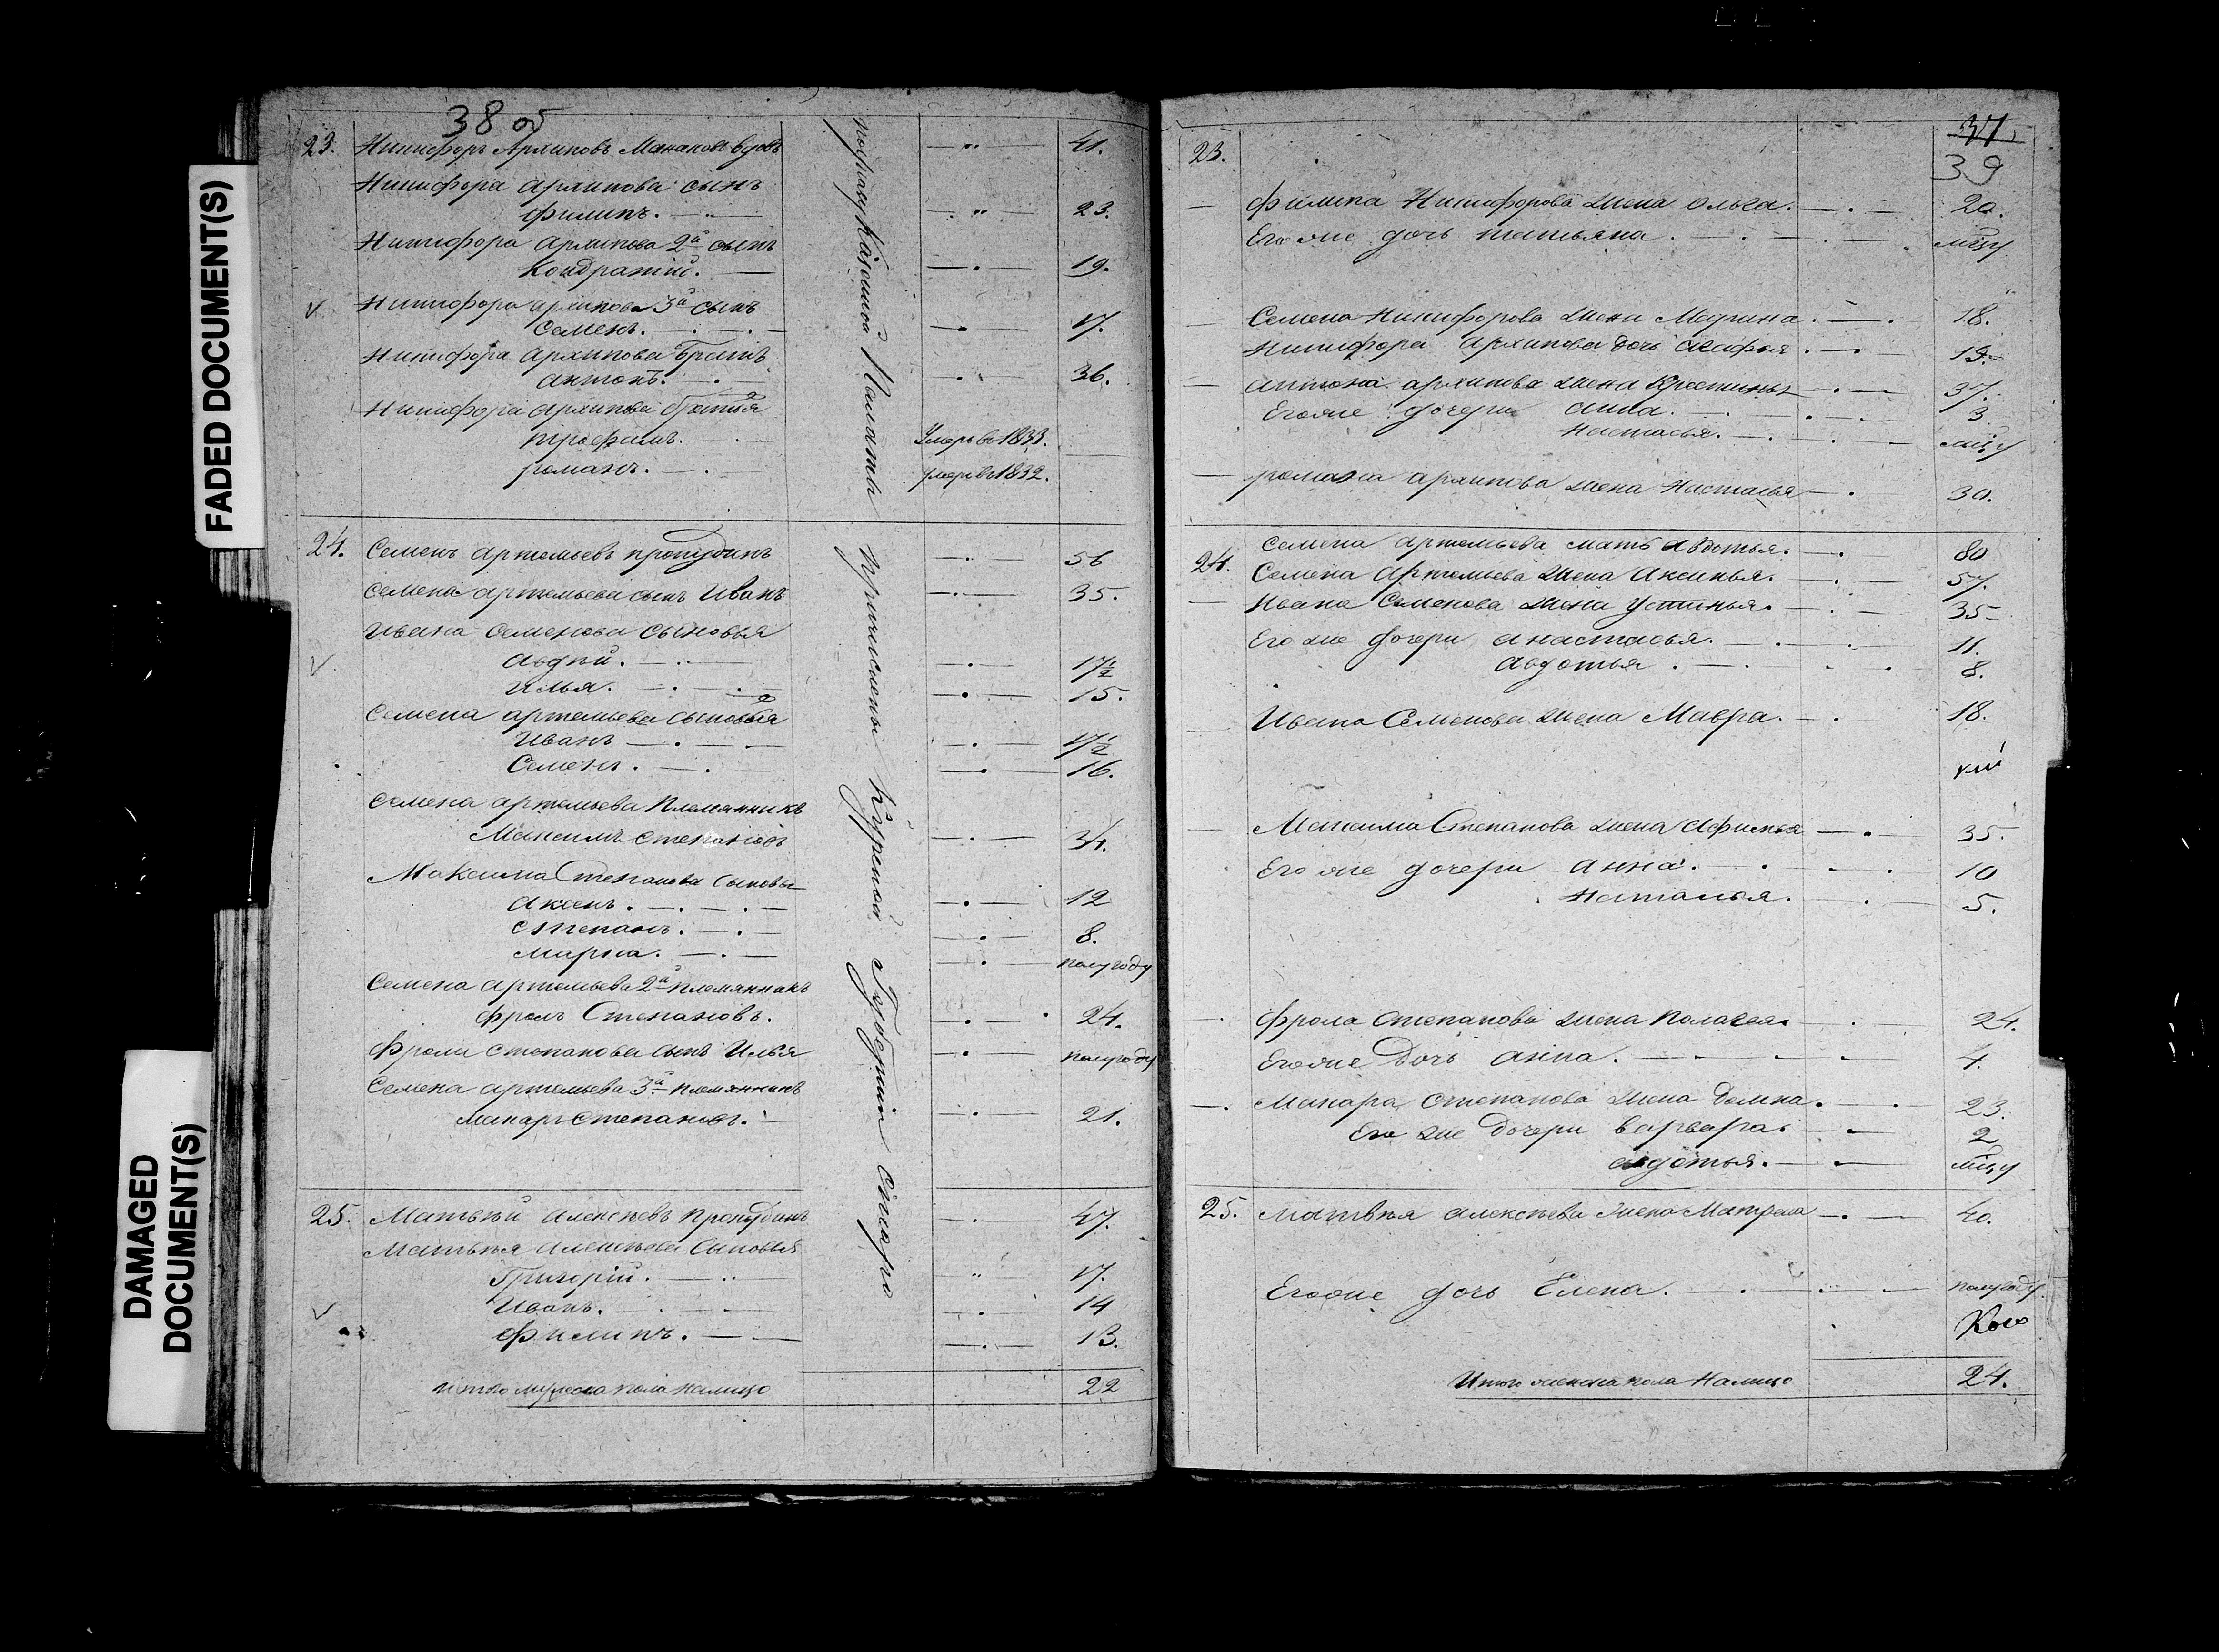 FADED DOCUMENT(S)
DAMAGED DOCUMENT(S)
38 об
23. Никифоръ Архиповъ Манаковъ вдовъ 41.
Никифора архипова сынъ
филипъ. 23.
Никифора архипова 2й сынъ
Кондратій. 19.
Никифора архипова 3й сынъ
Семенъ. 17.
Никифора архипова братъ
антонъ. 36.
Никифора архипова братья
трофимъ. Умеръ въ 1833.
романъ. умеръ въ 1832.
24. Семенъ артемьевъ прокудинъ 56
Семена артемьева сынъ Иванъ 35.
Ивана Семенова сыновья
Авдѣй. 17½
Илья. 15.
Семена артемьева сыновья
Иванъ 17½
Семенъ. 16.
Семена артемьева Племянникъ
Максимъ Степановъ 34.
Максима Степанова сыновья
Аксенъ. 12
Степанъ. 8.
марка. полугоду
Семена артемьева 2й племянникъ
фролъ Степановъ. 24.
фрола степанова сынъ Илья полугоду
Семена артемьева 3й племянникъ
макаръ степановъ. 21.
25. Матвѣй алексѣевъ Прокудинъ 47.
Матвѣя алексѣева сыновья
Григорій. 17.
Иванъ. 14
филипъ. 13.
итого мужеска пола налицо 22
Казенной Палаты причислены Курской Губерніи старо
37
39
23.
филипа Никифорова жена ольга. 20.
Его же дочь татьяна. мцу
Семена Никифорова жена Марина. 18.
Никифора архипова дочь агафья. 19.
антона архипова жена Крестинья 37.
Его же дочери анна. 3
настасья. мцу
романа архипова жена настасья 30.
24. Семена артемьева мать авдотья. 80
Семена артемьева жена Аксинья. 57.
Ивана Семенова жена Устинья. 35
Его же дочери анастасья. 11.
авдотья. 8.
Ивана Семенова жена Мавра. 18.
Максима Степанова жена афимья 35.
Его же дочери анна. 10
наталья. 5.
фрола степанова жена Пологея. 24.
Его же дочь анна. 4.
Макара степанова жена домна. 23.
Его же дочери варвара. 2
авдотья. мцу
25. матвѣя алексѣева жена Матрена 40.
Его же дочь Елена. полугоду.
Итого женска пола налицо 24.